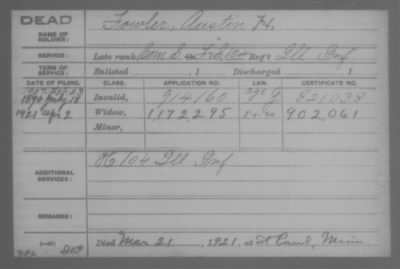 DEAD
NAME OF SOLDIER: Fowler, Austin H.
SERVICE: Late rank Com S Co. Reg't Ill Inf
TERM OF SERVICE: Enlisted , 1 Discharged , 1
DATE OF FILING. CLASS. APPLICATION NO. LAW. CERTIFICATE NO.
1890 July 18 Invalid, 914160 821038
1921 Apr 2 Widow, 1,172,295 5-1-20 902,061
Minor,
K 104 Ill Inf
ADDITIONAL SERVICES:
REMARKS:
Died Mar 21 , 1921, at St Paul, Minn